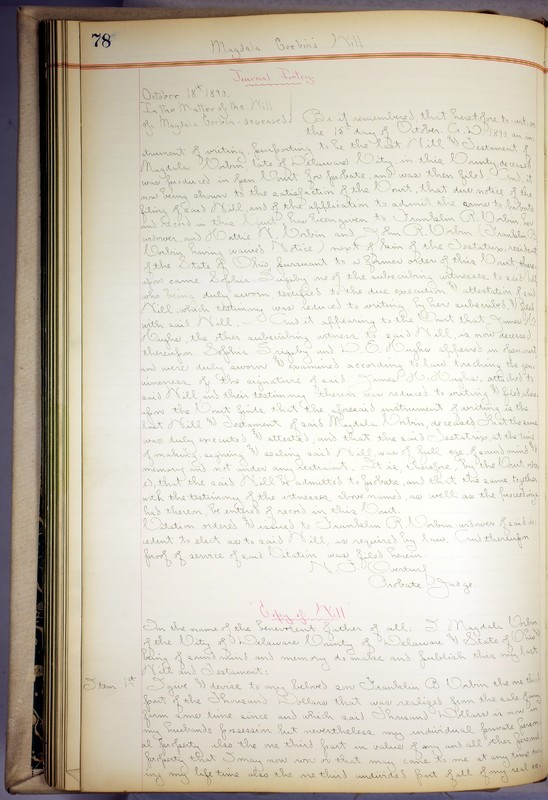 78
Magdala Corbin's Will
Journal Entry
October 18th 1890.
In the Matter of the Will
of Magdala Corbin deceased
Be it remembered, that heretofore to wit on
the 13th day of October A. D. 1890 an in-
strument of writing, purporting to be the last Will & Testament of
Magdala Corbin, late of Delaware City, in this County, deceased
was produced in open Court for probate, and was then filed. And it
now being shown to the satisfaction of the Court, that due notice of the
filing of said Will, and of the application to admit the same to probate
and record in this Court has been given to Franklin R. Corbin, her
widower, and Hattie Corbin and John R. Corbin (Franklin B.
Corbin having waived Notice) next of kin of the Testatrix, resident
of the State of Ohio, pursuant to a former order of this Court there-
upon came Sophia one of the subscribing witnesses to said Will
who being duly sworn testified to the due execution & attestation of said
Will, which testimony was reduced to writing by her subscribed & filed
with said Will. And it appearing to the Court that James H.
Hughes the other subscribing witness to said Will, is now deceased
thereupon Sophia and D. E. Hughes appeared in open court
and were duly sworn & examined according to law touching the gen-
uineness of the signature of said James H. Hughes, attached to
said Will, and their testimony therein was reduced to writing & filed, where-
upon the Court finds that the aforesaid instrument of writing is the
last Will & Testament of said Magdala Corbin, deceased, that the same
was duly executed & attested, and that the said Testatrix, at the time
of making, signing & sealing said Will, was of full age, of sound mind &
memory, and not under any restraint. It is, therefore, by the Court order-
ed, that the said Will be admitted to probate, and that the same together
with the testimony of the witnesses above named, as well as the proceedings
had therein, be entered of record in this Court.
Citation ordered & issued to Franklin R. Corbin widower of said de-
cedent to elect as to said Will, as required by law. And thereupon
proof of service of said Citation was filed herein.
N. F. Overturf
Probate Judge
Copy of Will
In the name of the benevolent father of all. I Magdala Corbin
of the City of Delaware County of Delaware & State of Ohio
being of sound mind and memory do make and publish this my last
Will and Testament:
Item 1st I give & devise to my beloved son Franklin B Corbin the one third
part of the Thousand Dollars that was realized from the sale of my
farm some time since and which said Thousand Dollars is now in
my husbands possession but nevertheless my individual private person-
al property also the one third part in value of any and all other personal
property that I may now own or that may come to me at any time dur-
ing my life time also the one third undivided part of all of my real es-